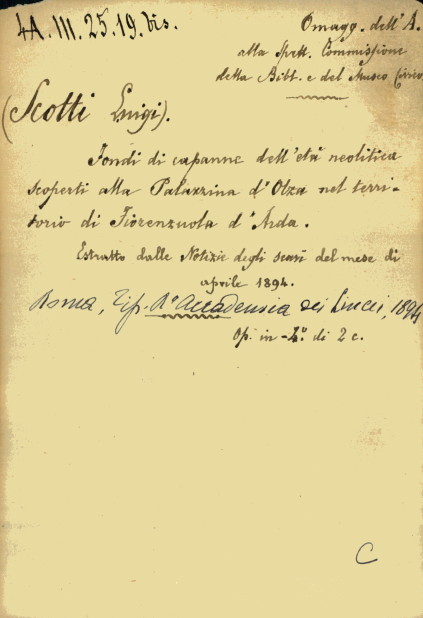 4A.III.25.19.bis.
Omagg. dell'A.
alla Spett. Commissione
della Bibl. e del Museo Civico
(Scotti Luigi).
Fondi di capanne dell'età neolitica
scoperti alla Palazzina d'Olza nel terri-
torio di Fiorenzuola d'Arda.
Estratto dalle Notizie degli scavi del mese di
aprile 1894.
Roma, Tip. Rª Accademia dei Lincei, 1894
Op. in-4.º di 2 c.
C